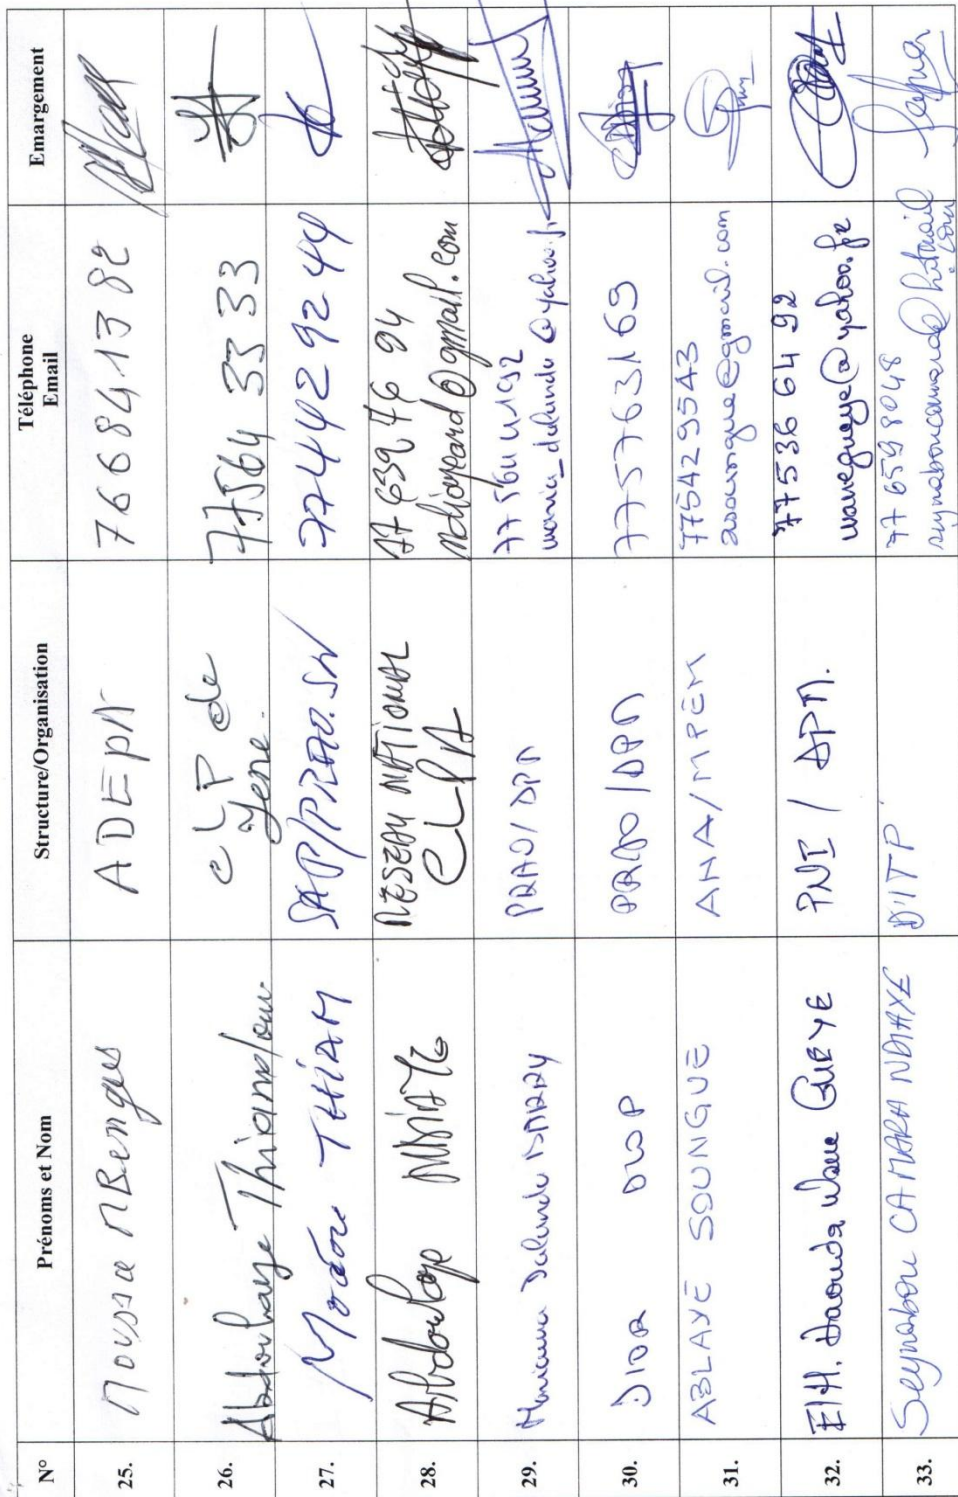 N° Prénoms et Nom Structure/Organisation Téléphone Email Emargement
25. Moussa MBengue ADEPA 766841382
26. Abdoulaye Thiam CLP de Yene. 77564 33 33
27. Modou THIAM SAP/PRAO.SN 774429244
28. Abdoulaye NDIAYE RESEAU NATIONAL CLPA 77 639 76 94
29. PRAO/DPM
30. DIOR DIOP PRAO/DPM 775763169
31. ABLAYE SOUNGUE ANA/MPEM 775429543
32. El H. Daouda Wane GUEYE PNI / DPM. 77536 64 92 wanegueye@yahoo.fr
33. Seynabou CAMARA NDIAYE DITP 77 6598048 seynaboucamara@hotmail.com